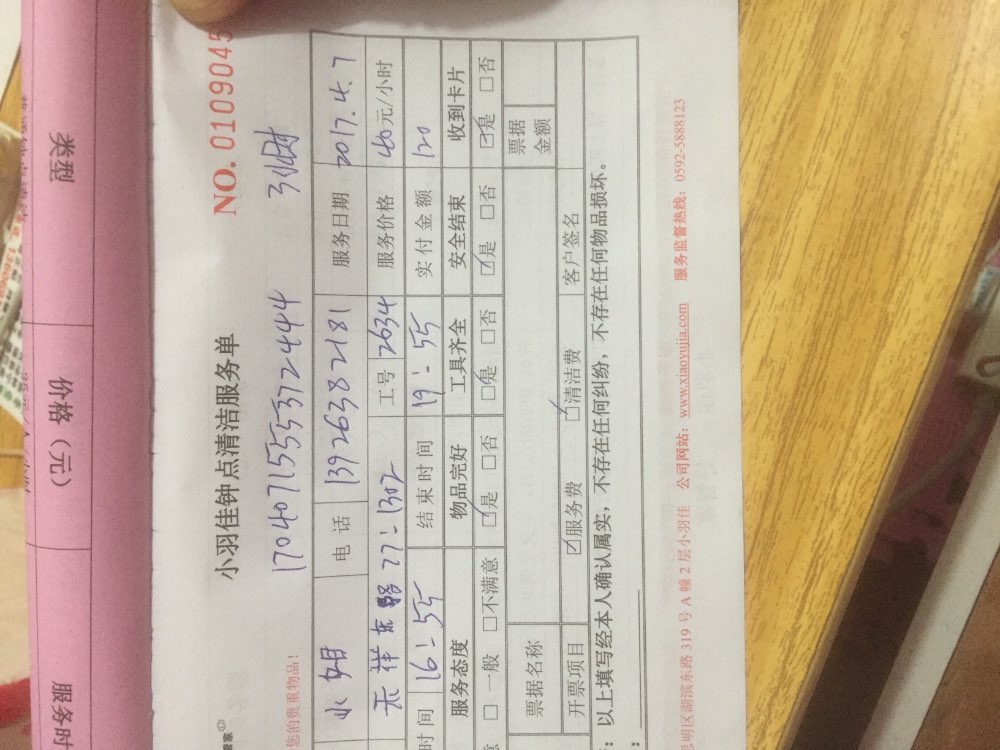 类型
价格（元）
服务时
NO. 0109045
小羽佳钟点清洁服务单
170407155537244443小时
您的贵重物品！
电 话 13926382181 服务日期 2017.4.7
天祥东路77-1302 工号 2634 服务价格 40元/小时
时间 16:55 结束时间 19:55 实付金额 120
服务态度 物品完好 工具齐全 安全结束 收到卡片
意 □ 一般 □不满意 ☑是 □否 ☑是 □否 ☑是 □否 ☑是 □否
票据名称 票据金额
开票项目 ☑服务费 ☑清洁费 客户签名
：以上填写经本人确认属实，不存在任何纠纷，不存在任何物品损坏。
思明区湖滨东路 319 号 A 幢 2 层小羽佳 公司网站：www.xiaoyujia.com 服务监督热线：0592-5888123